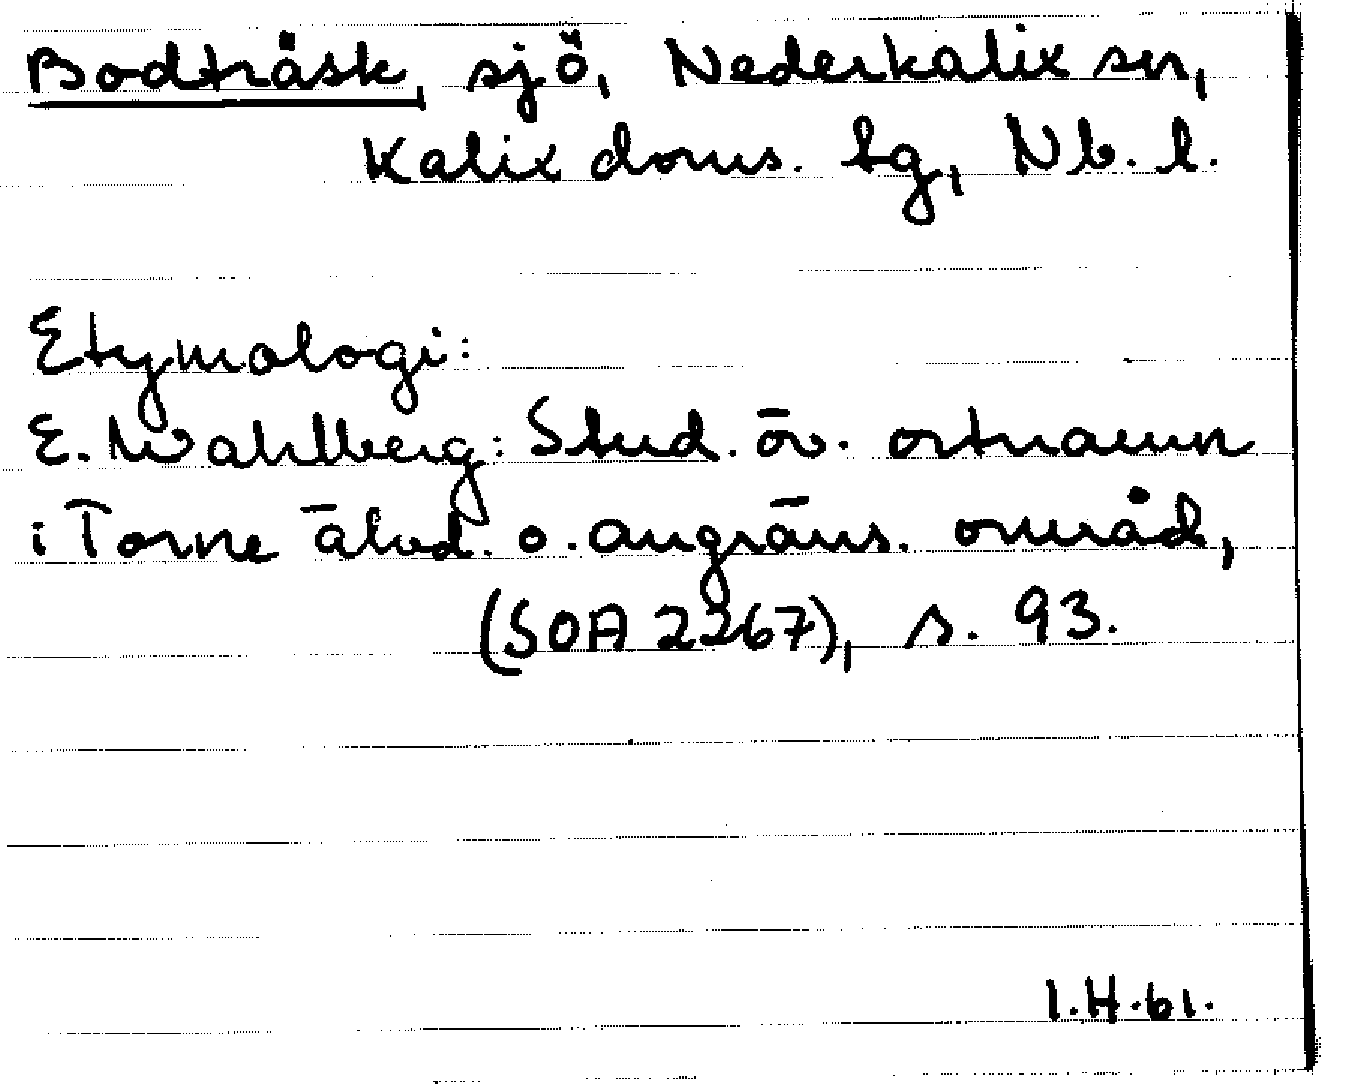 Bodträsk, sjö, Nederkalix sn,
Kalix doms. tg, Nb. l.
Etymologi:
E. Wahlberg: Stud. öv. ortnamn
i Torne älvd. o. angräns. områd.,
(SOA 2267), s. 93.
I.H.61.